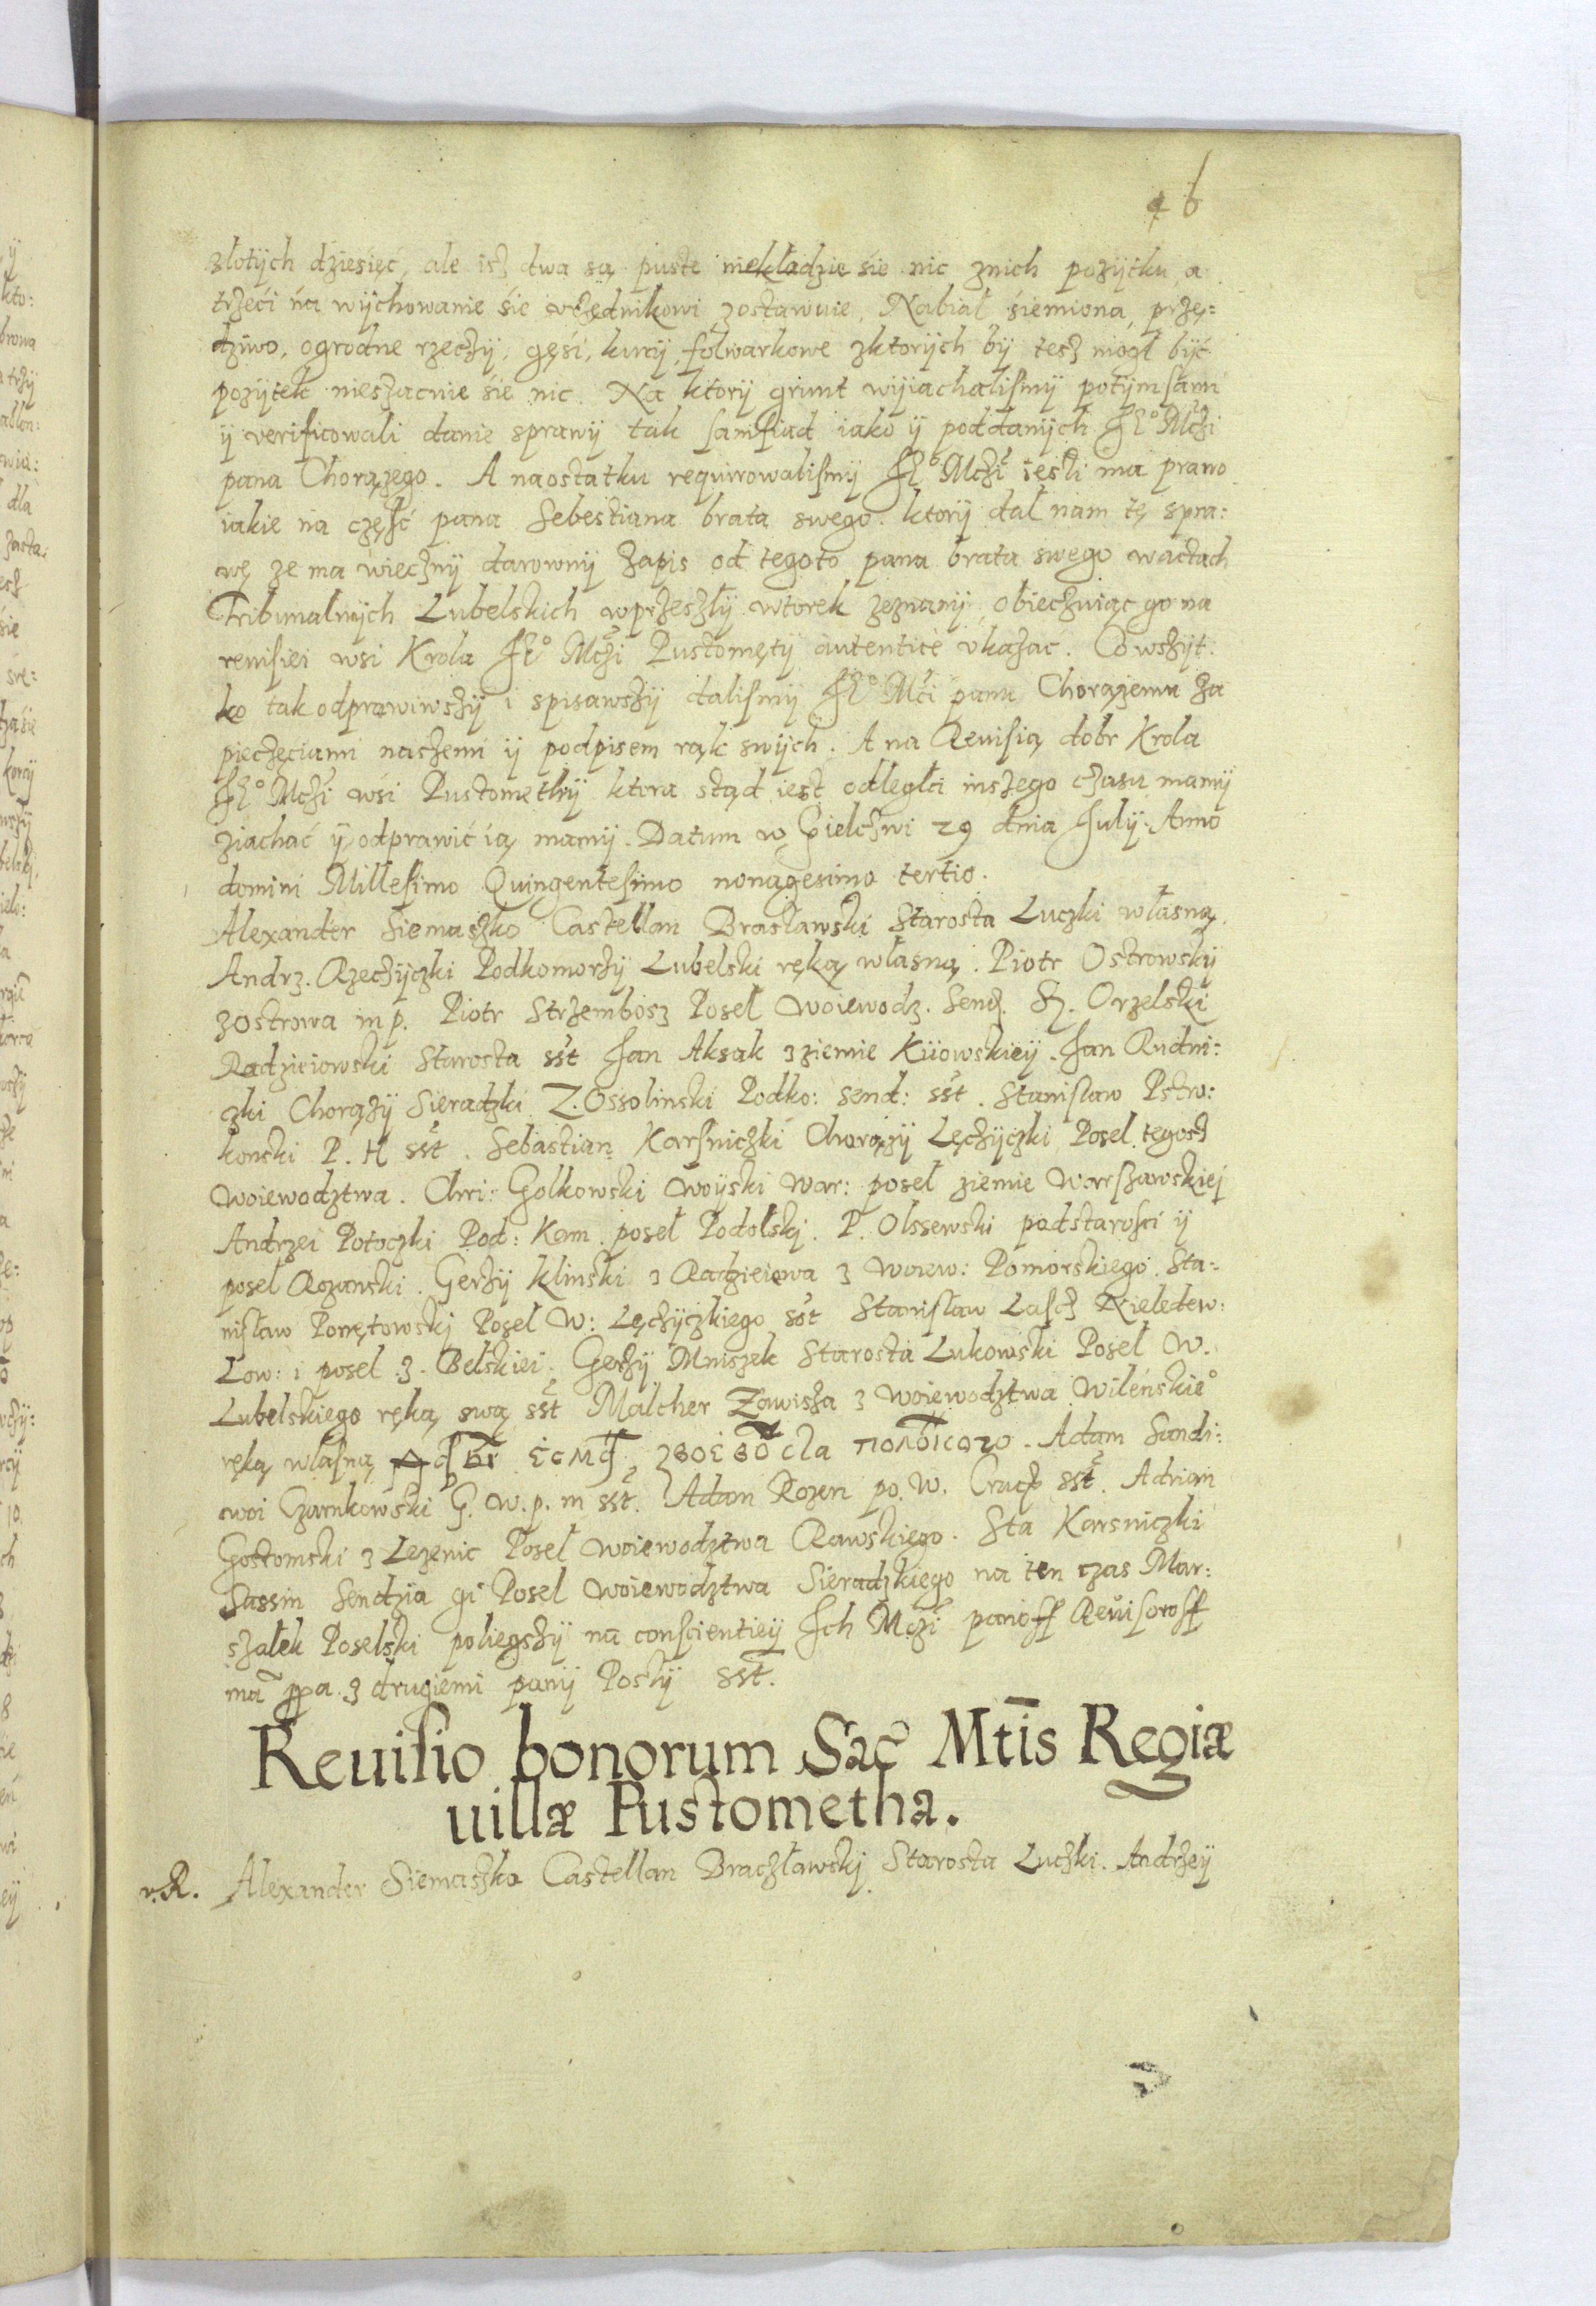 46
złotych dziesięć, ale isz dwa są puste niekładzie sie nic znich pożytku, a
trzeci na wychowanie sie vrzędnikowi zostawuie. Nabiał siemiona, przę:
dziwo, ogrodne rzeczy, gęsi, kury, folwarkowe zktorych by tesz mogł być
pożytek nieszacuie sie nic. Na ktory grunt wyiachalismy potym sami
y verificowali danie sprawy tak samsiad iako y poddanych JE° Mczi
pana Chorążego. A naostatku requirowalismy JE° Mczi iesli ma prawo
iakie na część pana Sebestiana brata swego. ktory dał nam tę spra:
wę ze ma wieczny darowny zapis od tegoto pana brata swego wactach
Tribunalnych Lubelskich wprzeszły wtorek zeznany, obieczuiąc go na
reuisiei wsi Krola JE° Mczi Pustomęty autentice vkazac. Co wszyt:
ko tak odprawiwszy i spisawszy dalismy JE° Mci panu Chorążemu za
pieczęciami naszemi y podpisem rąk swych. A na Reuisią dobr Krola
JE° Mczi wsi Pustomethy ktora stąd iest odległa inszego czasu mamy
ziachać y odprawić ią mamy. Datum w Gielczwi 29 dnia July. Anno
domini Millesimo Quingentesimo nonagesimo tertio.
Alexander Siemaszko Castellan Brasławski Starosta Luczki własną.
Andrz. Rzeczyczki Podkomorzy Lubelski ręką własną. Piotr Ostrowsky
zostrowa mp. Piotr Strzembosz Poseł woiewodz. Send. Orzelski
Radzieiowski Starosta sst Jan Aksak z ziemie Kiiowskiey. Jan Rudni:
czki Chorąży Sieradzki Z. Ossolinski Podko: send: sst. Stanisław Pstro:
konski P. H sst. Sebastian Karsniczki Chorąży Lęczyczki Poseł tegosz
woiewodztwa. Chri: Golkowski woyski War: poseł ziemie Warszawskiej
Andrzei Potoczki Pod: Kam. poseł Podolskj. P. Olssewski podstarosci y
poseł Rozanski. Gerzy Klinski z Radzieiowa z woiew: Pomorskiego. Sta:
nisław Ponętowskj Poseł W: Lęczyczkiego sst Stanisław Lasch Nieledew:
Low: i poseł z. Belskiei. Gerzy Mniszek Starosta Lukowski Poseł W.
Lubelskiego ręką swą sst Malcher Zawisza z woiewodztwa wilenskie°
ręką własną Adam Sandi:
woi Czarnkowski G. w. p. m sst. Adam Rozen po. W. Crac sst. Adrian
Gostomski z Lezenic Poseł woiewodztwa Rawskiego. Sta Karsniczki
Sassin Sendzia Poseł woiewodztwa Sieradzkiego na ten czas Mar:
szałek Poselski poliegszy na conscientiey Ich Mczi panoff Reuisoroff
z drugiemi pany Posły sst.
Reuisio bonorum Sac Mtis Regiæ
uillæ Pustometha.
r.R. Alexander Siemaszko Castellan Braczławskj Starosta Luczki. Andrzey